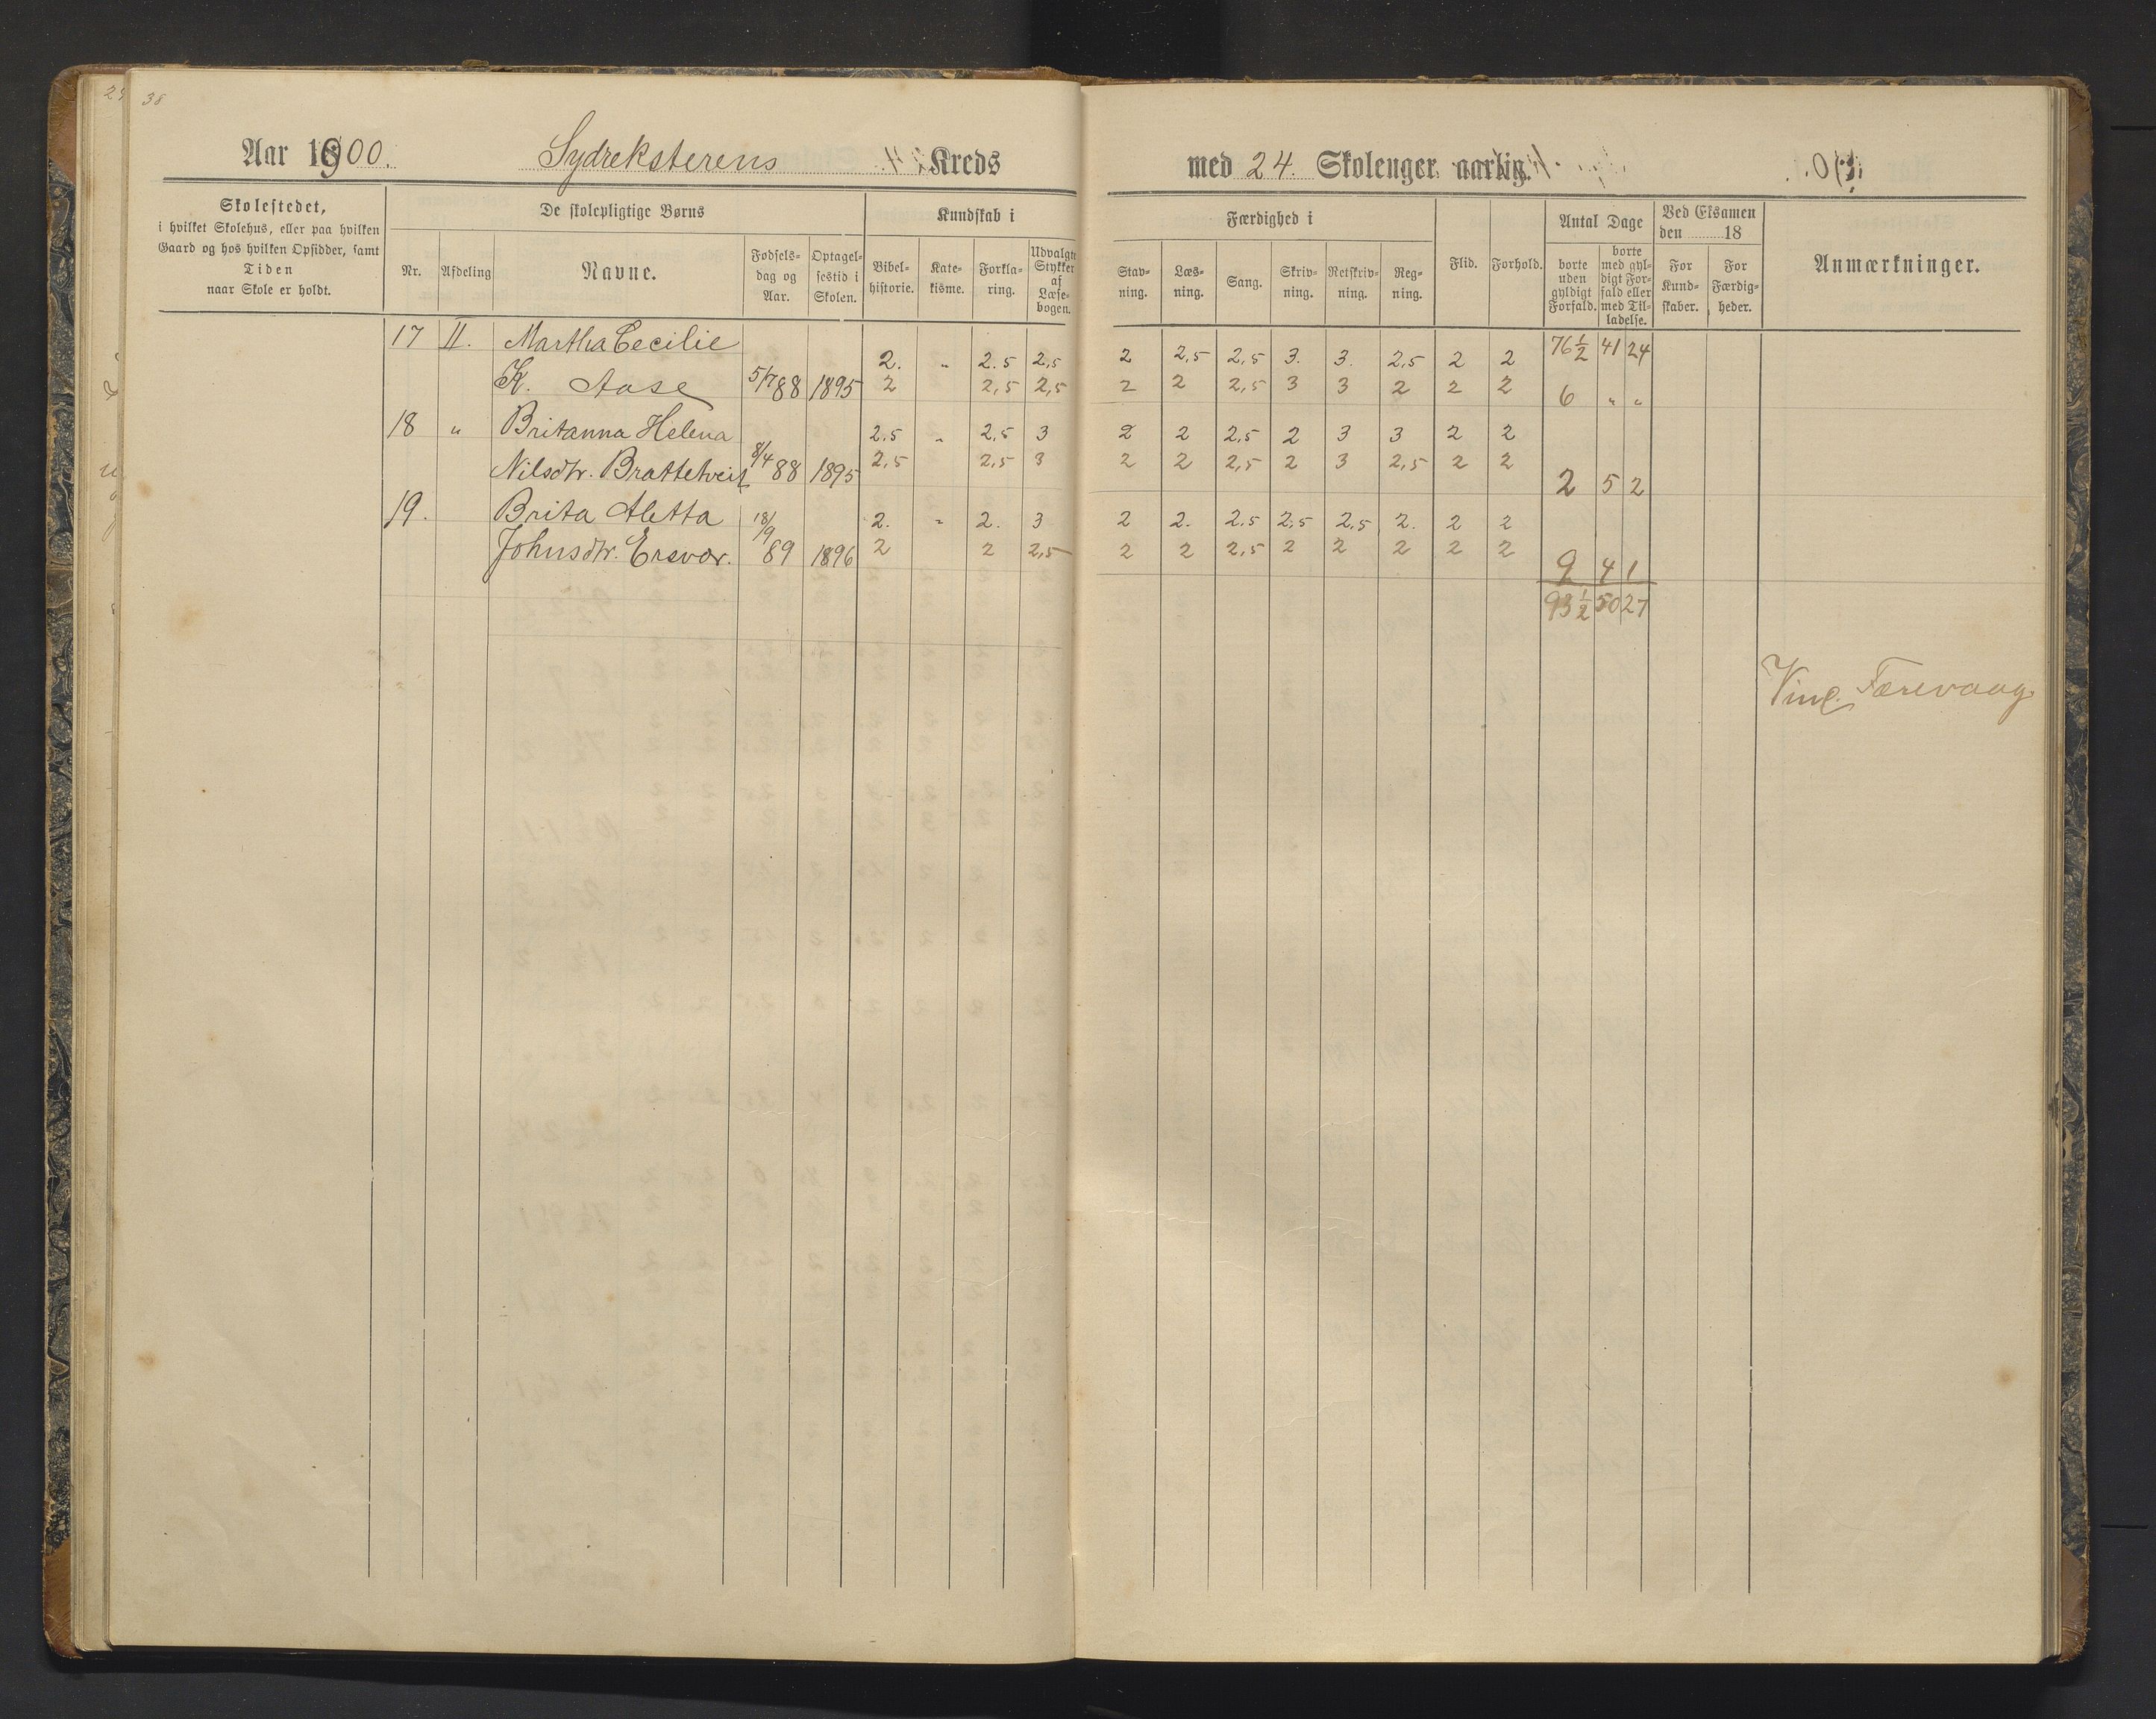 38
Aar 1900. Sydreksterens Kreds med 24. Skoleuger aarlig.
Skolestedet,
i hvilket Skolehus, eller paa hvilken
Gaard og hos hvilken Opsidder, samt
Tiden
naar Skole er holdt.
De skolepligtige Børns
Nr. Afdeling Navne.
Fødsels-
dag og
Aar.
Optagel-
sestid i
Skolen.
Kundskab i
Bibel-
historie.
Kate-
kisme.
Forkla-
ring.
Udvalgte
Stykker
af
Læse-
bogen.
Færdighed i
Stav-
ning.
Læs-
ning.
Sang.
Skriv-
ning.
Retskriv-
ning.
Reg-
ning.
Flid.
Forhold.
Antal Dage
borte
uden
gyldigt
Forfald.
borte
med gyl-
digt For-
fald eller
med Til-
ladelse.
Ved Eksamen
den 18
For
Kund-
skaber.
For
Færdig-
heder.
Anmærkninger.
17 II. Martha Cecilie 2. " 2.5 2,5 2 2,5 2,5 3. 3. 2,5 2 2 76½ 41 24
K. Aase 5/7 88 1895 2 2,5 2,5 2 2 2,5 3 3 2 2 2 6 " "
18 " Britanna Helena 2.5 " 2,5 3 2 2 2,5 2 3 3 2 2
Nilsdtr. Brattetveit 8/4 88 1895 2,5 2,5 3 2 2 2,5 2 3 2,5 2 2 2 5 2
19. Brita Aletta 18/9 2. " 2. 3 2 2. 2.5 2,5 2,5 2. 2 2
Johnsdtr. Ersvær. 89 1896 2 2 2,5 2 2 2,5 2 2 2 2 2 9 4 1
93½ 50 27
Vinc. Færevaag.